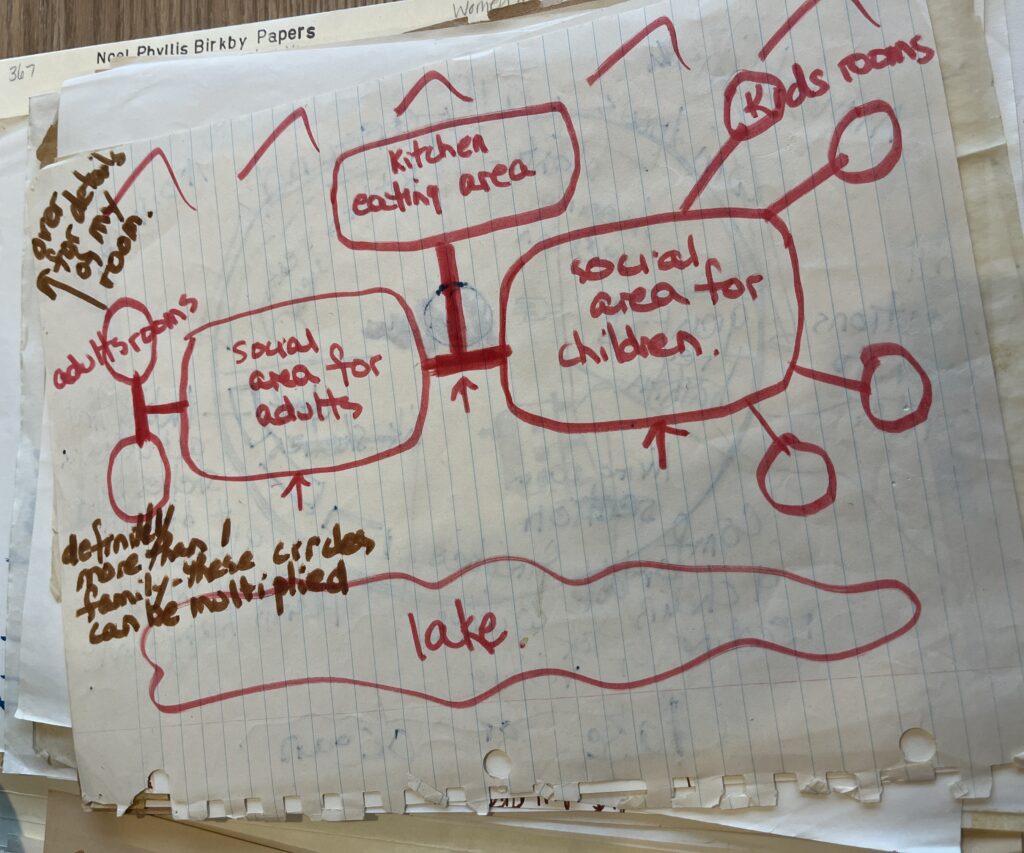 Noel Phyllis Birkby Papers
367
Kids rooms
Kitchen
eating area
over
for details
of my
room.
adults rooms
social
area for
adults
social
area for
children.
definitely
more than 1
family-these circles
can be multiplied
lake.